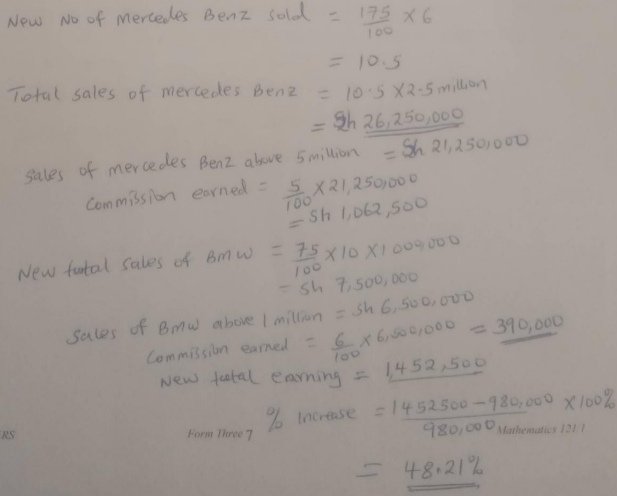 New No of Mercedes Benz sold = 175/100 × 6
= 10.5
Total sales of mercedes Benz = 10.5 × 2.5 million
= Sh 26,250,000
Sales of mercedes Benz above 5 million = Sh 21,250,000
Commission earned = 5/100 × 21,250,000
= Sh 1,062,500
New total sales of Bmw = 75/100 × 10 × 1000,000
= Sh 7,500,000
Sales of BMW above 1 million = Sh 6,500,000
Commission earned = 6/100 × 6,500,000 = 390,000
New total earning = 1,452,500
% Increase = 1452500 – 980,000/980,000 × 100%
RS Form Three 7 Mathematics 121/1
= 48.21%